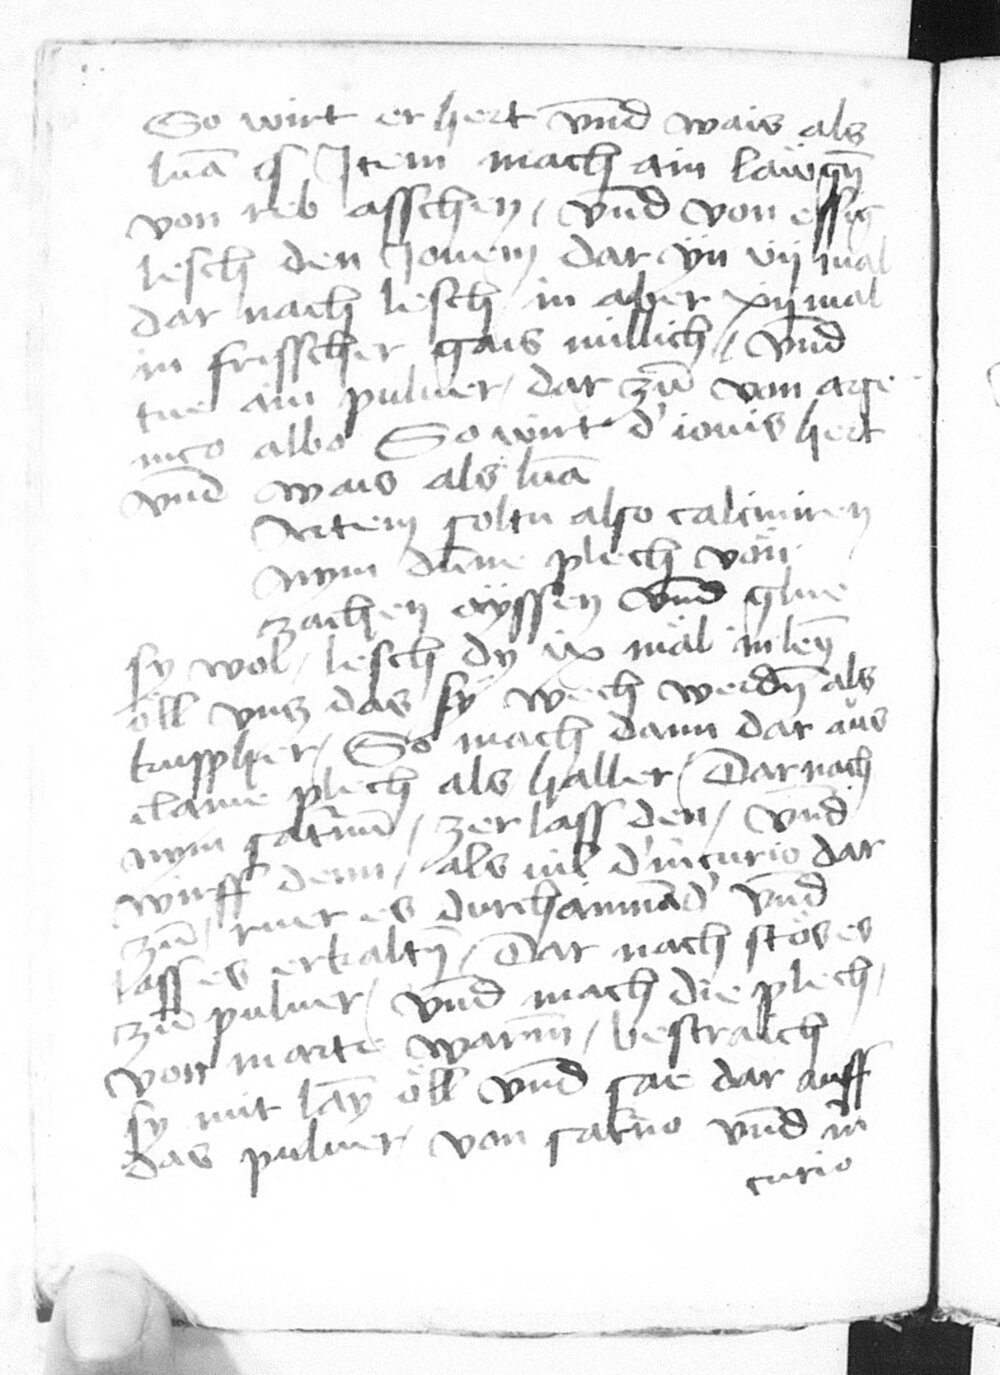 So wirt er hert vnd wais als
luna Item mach ain läwgn̄
von reb asschen / vnd von essig
lesch den Jouem dar yn vij mal
dar nach lesch in aber xij mal
in frisscher gais millich / vnd
tue ain puluer / dar zū von arße
nico albo So wirt d' iouis hert
vnd wais als lūa
Artem soltu also calciniren
Nym dūnne plech von
zachen eÿssen vnd glue
sy wol / lesch dy ix mäl in leÿ
öll vnz das sy wech werdn̄ als
kuppher / So mach dann dar aus
claine plech als haller / Dar nach
nym saturnū / zer lass den / vnd
wirff denn / als vil d' m̄curio dar
zū / ruer es durch ainnand' vnd
lass es erkaltn̄ / Dar nach stös es
zū puluer / vnd mach die plech /
von marte warm / bestraich
sy mit laÿ öll vnd sae dar auff
das puluer von satūno vnd m̄
curio